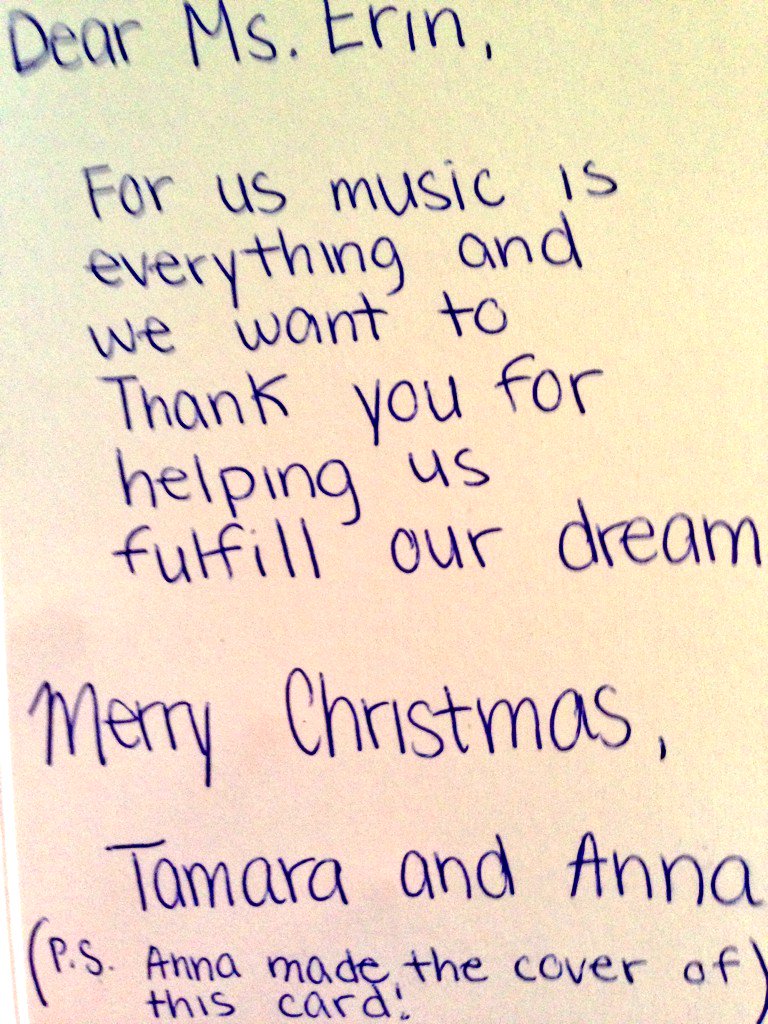 Dear Ms. Erin,
For us music is
everything and
we want to
Thank you for
helping us
fulfill our dream
Merry Christmas,
Tamara and Anna
(P.S. Anna made the cover of)
this card!